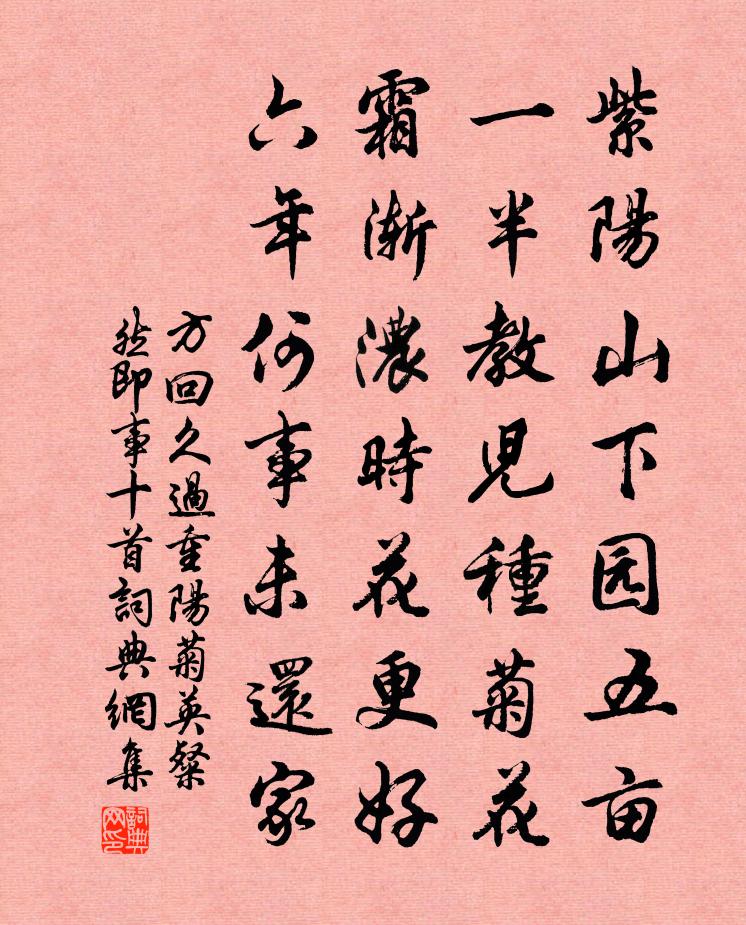 紫陽山下园五亩
一半教児種菊花
霜渐濃時花更好
六年何事未還家
方回久過重陽菊英粲
然即事十首詞典網集
詞典
网印